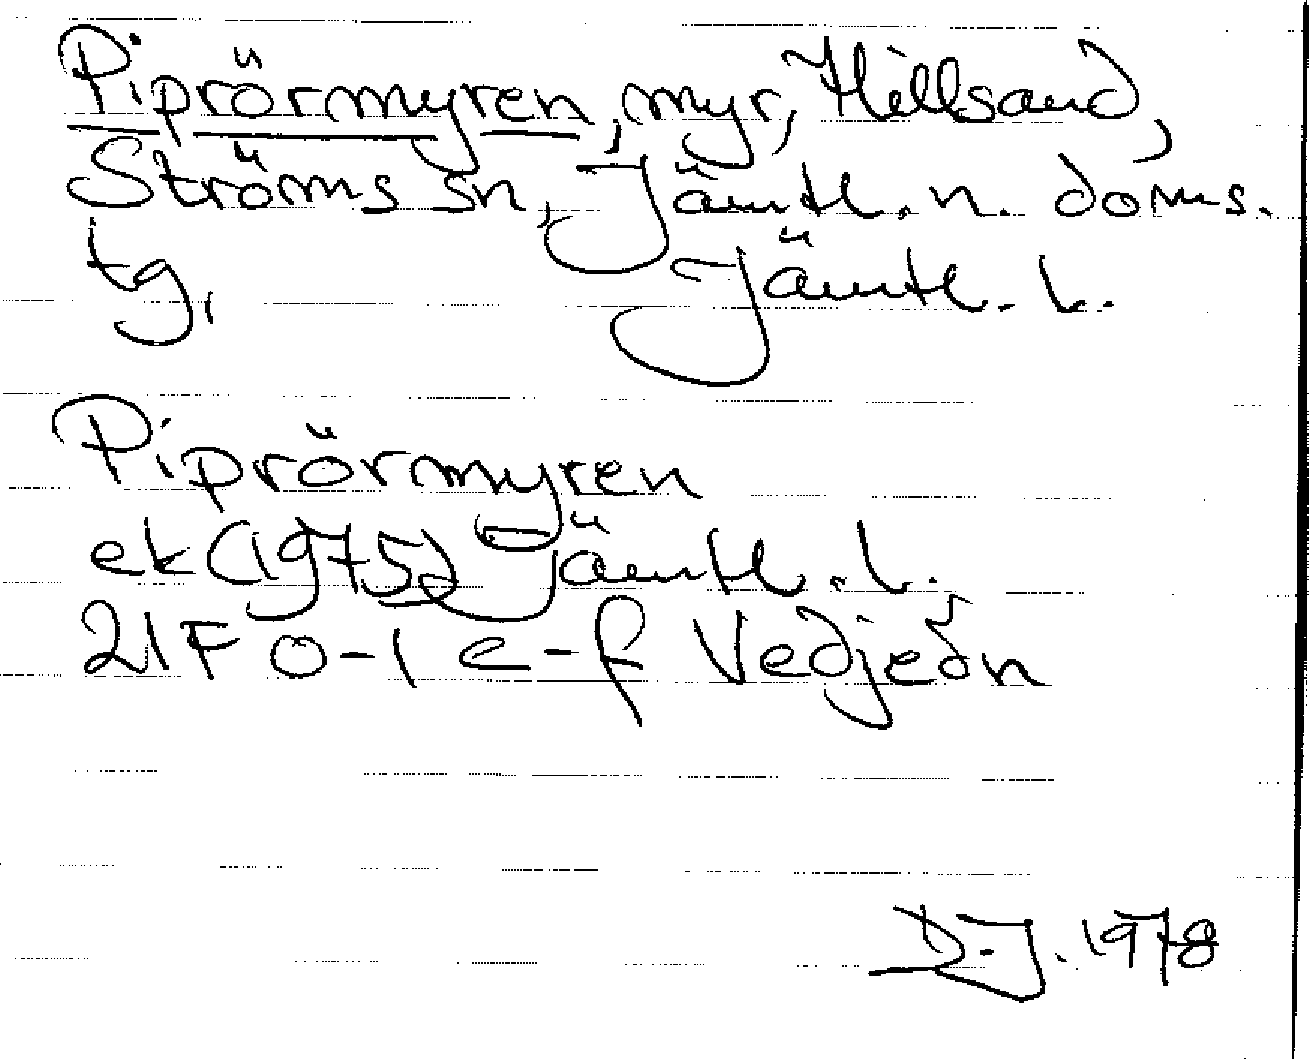 Piprörmyren, myr, Hillsand,
Ströms sn, Jämtl. n. doms.
tg, Jämtl. l.
Piprörmyren
ek (1975) Jämtl. l.
21F 0-1 e-f Vedjeön
D.J. 1978